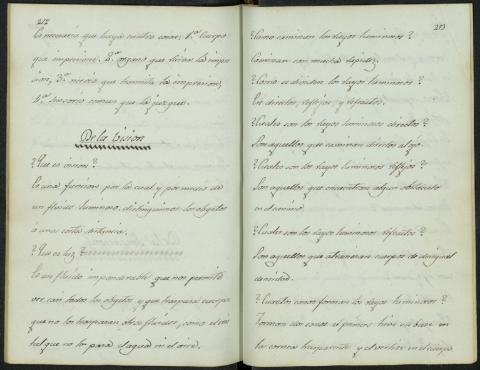 212
Es necesario que haya cuatro cosas; 1.º Cuerpo
que impresione, 2.º organo que reciva la impre
sion, 3.º nervio que transmita la impresion,
4.º sensorio comun que la juzgue.
De la Vision
? Que es vision ?
Es una funcion por la cual y por medio de
un fluido luminoso, distinguimos los objetos
á una cierta distancia.
? Que es luz ?
Es un fluido imponderable que nos permite
ver con todos los objetos y que traspasa cuerpos
que no los traspasan otros fluidos, como el cris
tal que no lo pasa el agua ni el aire.
213
? Como caminan los rayos luminosos ?
Caminan con mucha rapidez.
? Como se dividen los rayos luminosos ?
En directos, reflejos, y refractos.
? Cuales son los rayos luminosos directos ?
Son aquellos que caminan directos al ojo.
? Cuales son los rayos luminosos reflejos ?
Son aquellos que encuentran algun obstaculo
en el camino.
? Cuales son los rayos luminosos refractos ?
Son aquellos que atraviesan cuerpos de desigual
densidad.
? Cuantos conos forman los rayos luminosos ?
Forman dos conos el primero tiene su base en
la cornea trasparente y el vertice en el cuerpo